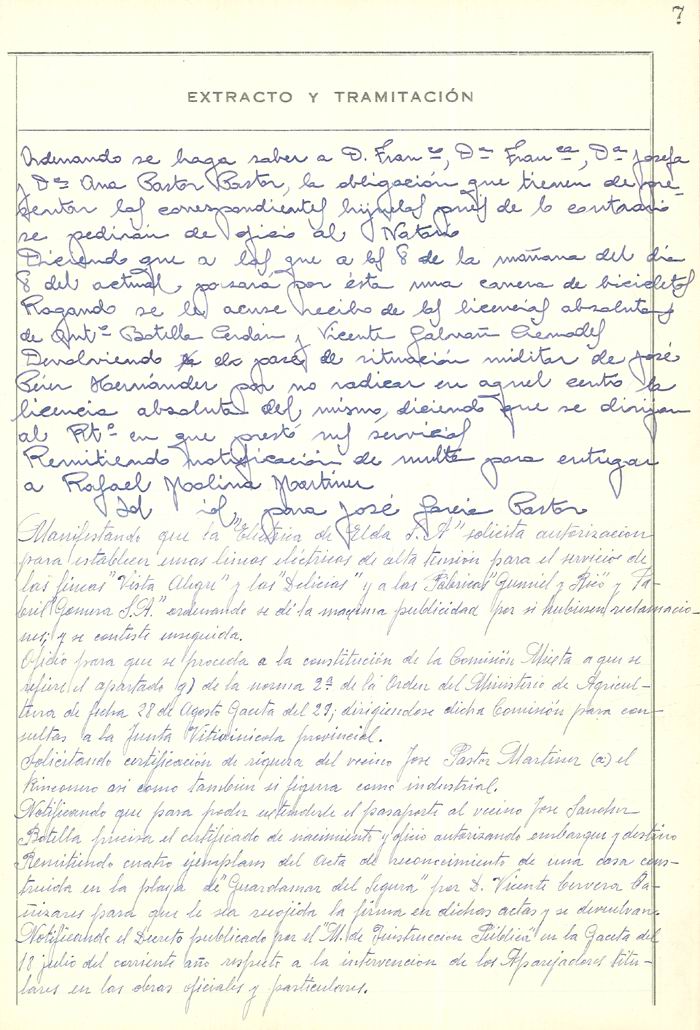 7
EXTRACTO Y TRAMITACIÓN
Ordenando se haga saber a D. Franco, Da Franca, Da Josefa
y Da Ana Pastor Pastor, la obligación que tienen de pre-
sentar las correspondientes hijuelas pues de lo contrario
se pedirán de oficio al Notario
Diciendo que a las que a las 8 de la mañana del dia
8 del actual, pasará por ésta una carrera de bicicletas
Rogando se le acuse recibo de las licencias absolutas
de Anto Botella Cerdán y Vicente Galvañ Cremades
Devolviendo el pase de situación militar de José
Pérez Hernández por no radicar en aquel centro la
licencia absoluta del mismo, diciendo que se dirijan
al Rto en que prestó sus servicios
Remitiendo notificación de multa para entregar
a Rafael Molina Martinez
Id id, para José Garcia Pastor
Manifestando que la "Electrica de Elda S.A" solicita autorizacion
para establecer unas lineas eléctricas de alta tensión para el servicio de
las fincas "Vista Alegre" y las "Delicias" y a las Fábricas "Gumiel y Rico" y Fa-
bril "Gomera S.A." ordenando se dé la maxima publicidad por si hubiesen reclamacio-
nes; y se conteste enseguida.
Oficio para que se proceda a la constitución de la Comisión Mixta a que se
refiere el apartado g) de la norma 2ª de la Orden del Ministerio de Agricul-
tura de fecha 28 de Agosto Gaceta del 29; dirigiendose dicha Comisión para con-
sultas a la Junta Vitivinicola provincial.
Solicitando certificación de riqueza del vecino Jose Pastor Martinez (a) el
Rinconero asi como tambien si figura como industrial.
Notificando que para poder extenderle el pasaporte al vecino Jose Sanchez
Botella precisa el certificado de nacimiento y oficio autorizando embarque y destino
Remitiendo cuatro ejemplares del Acta de reconocimiento de una casa cons-
truida en la playa de "Guardamar del Segura" por D. Vicente Cervera Ca-
ñizares para que le sea recojida la firma en dichas actas y se devuelvan.
Notificando el Decreto publicado por el "M. de Instruccion Pública" en la Gaceta del
18 julio del corriente año respecto a la intervencion de los Aparejadores titu-
lares en las obras oficiales y particulares.